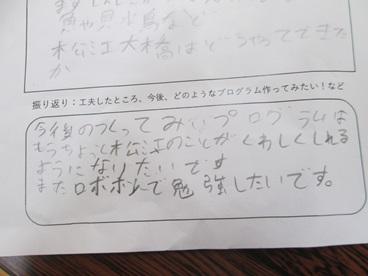 魚や貝小鳥など
松江大橋はどうやってできた
か
振り返り：工夫したところ、今後、どのようなプログラム作ってみたい！など
今後のつくってみたいプログラムは
もうちょっと松江のことがくわしくしれる
ようになりたいです
またロボホンで勉強したいです。